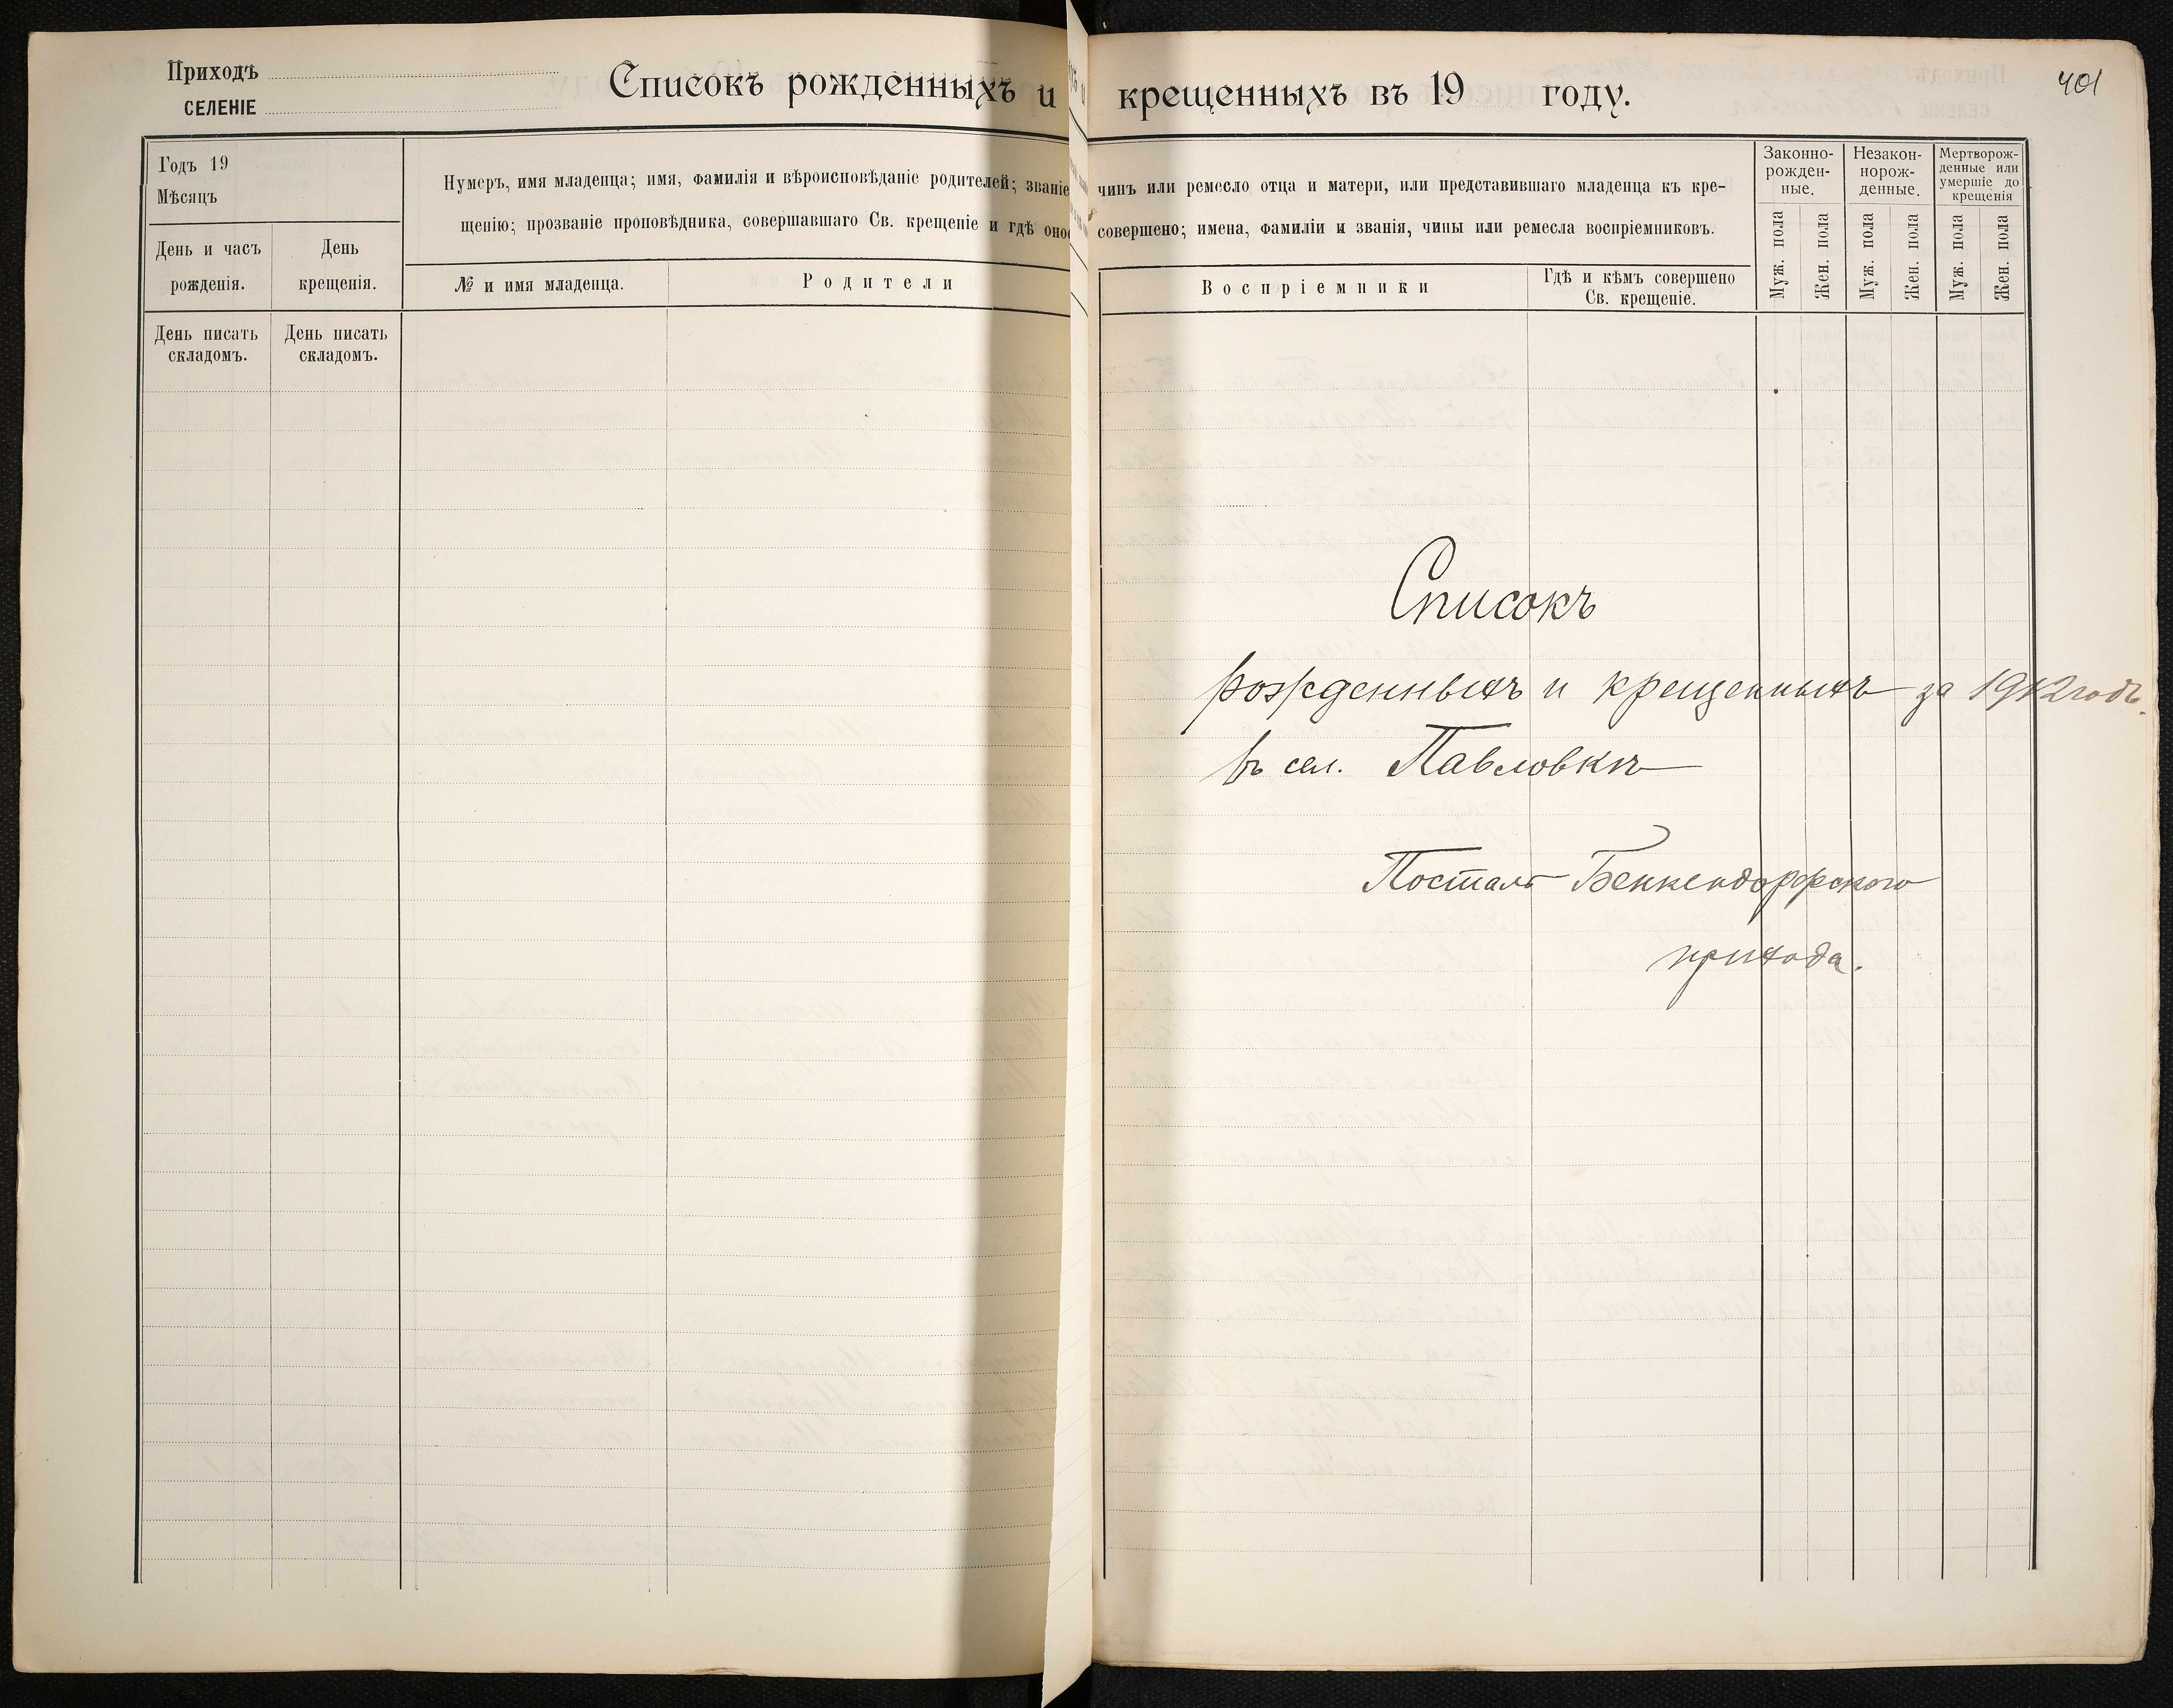 Приходъ
СЕЛЕНІЕ
Списокъ рожденныхъ и крещенныхъ въ 19 году.
401
Годъ 19
Мѣсяцъ
День и часъ рожденія.
День крещенія.
Нумеръ, имя младенца; имя, фамилія и вѣроисповѣданіе родителей; званіе
щенію; прозваніе проповѣдника, совершавшаго Св. крещеніе и гдѣ оно
№ и имя младенца.
Родители
чинъ или ремесло отца и матери, или представившаго младенца къ кре-
совершено; имена, фамиліи и званія, чины или ремесла воспріемниковъ.
Воспріемники
Гдѣ и кѣмъ совершено
Св. крещеніе.
Законно-
рожден-
ные.
Незакон-
норож-
денные.
Мертворож-
денные или
умершіе до
крещенія
Муж. пола
Жен. пола
Муж. пола
Жен. пола
Муж. пола
Жен. пола
День писать
складомъ.
День писать
складомъ.
Списокъ
рожденныхъ и крещенныхъ за 1912 годъ.
въ сел. Павловкѣ
Посталь-Беккендорфского
прихода.